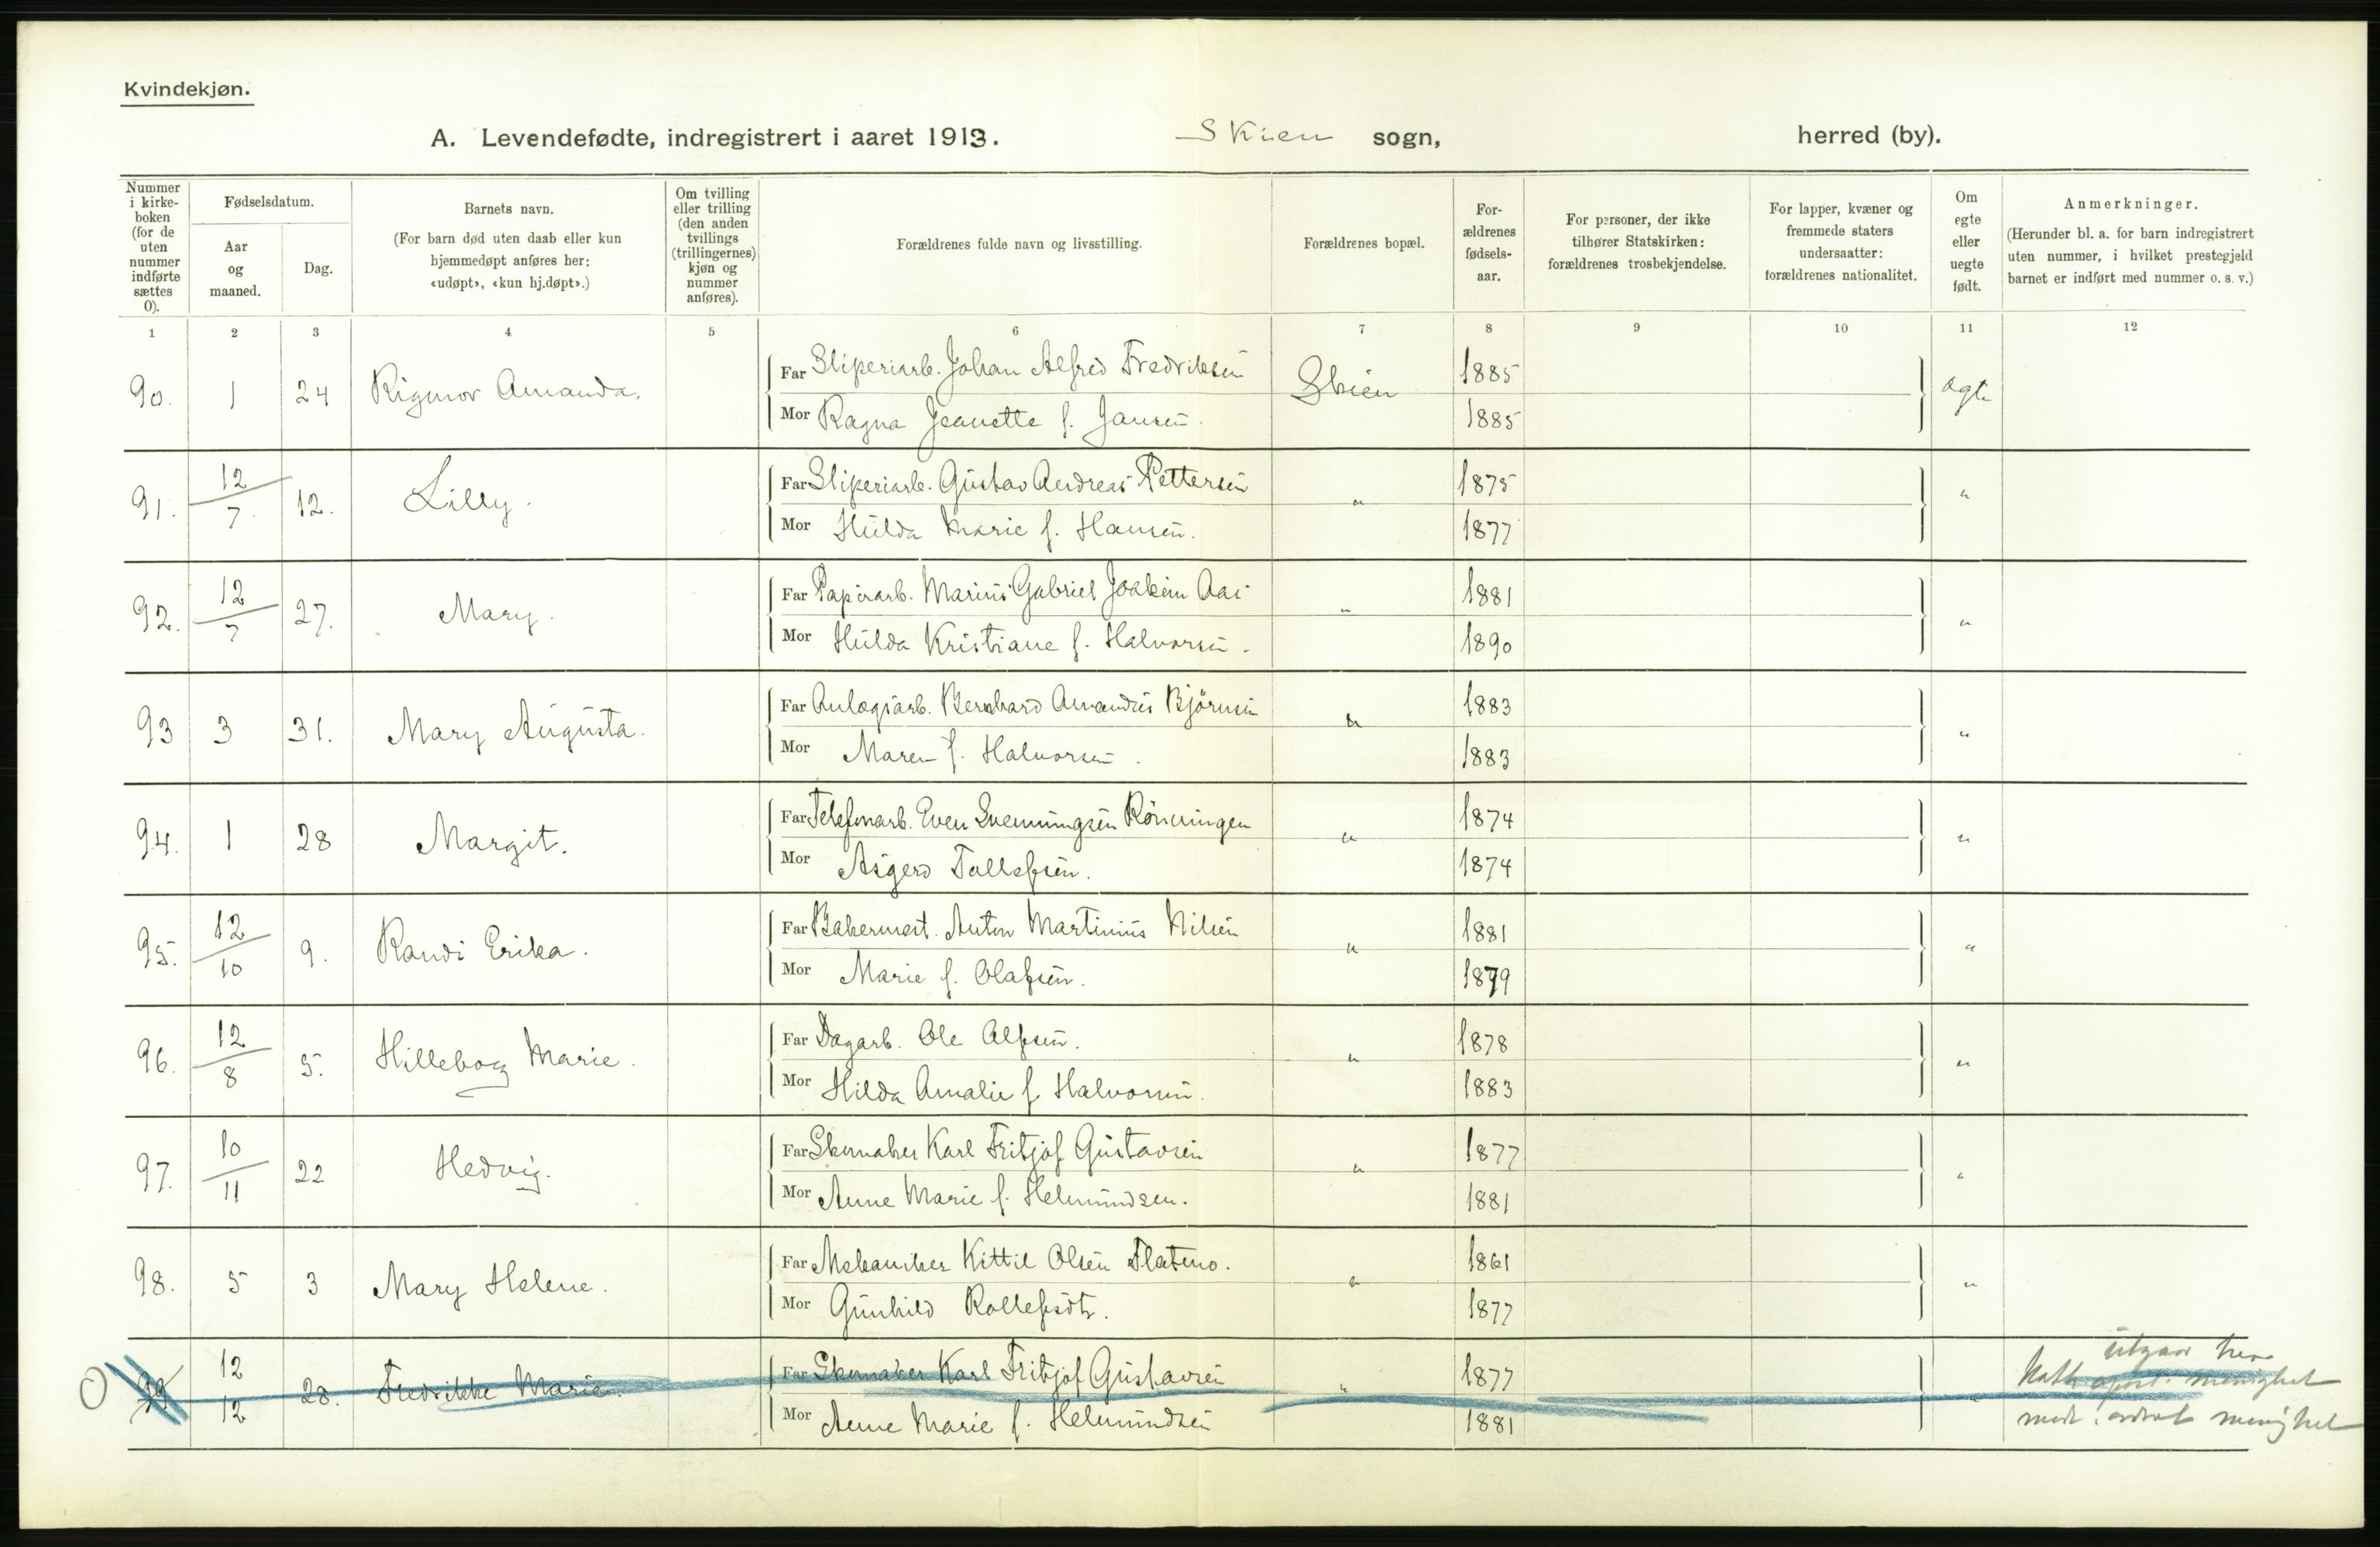 Kvindekjøn.
A. Levendefødte, indregistrert i aaret 1913. Skien sogn, herred (by).
Nummer i kirke-boken (for de uten nummer indførte sættes 0).
Fødselsdatum.
Aar og maaned.
Dag.
Barnets navn.
(For barn død uten daab eller kun hjemmedøpt anføres her: «udøpt», «kun hj.døpt».)
Om tvilling eller trilling (den anden tvillings (trillingernes) kjøn og nummer anføres).
Forældrenes fulde navn og livsstilling.
Forældrenes bopæl.
For-ældrenes fødsels-aar.
For personer, der ikke tilhører Statskirken: forældrenes trosbekjendelse.
For lapper, kvæner og fremmede staters undersaatter: forældrenes nationalitet.
Om egte eller uegte født.
Anmerkninger.
(Herunder bl. a. for barn indregistrert uten nummer, i hvilket prestegjeld barnet er indført med nummer o. s. v.)
1 2 3 4 5 6 7 8 9 10 11 12
90. 1 24 Rigmor Amanda. Far Sliperiarb. Johan Alfred Fredriksen Skien 1885 ægte
Mor Ragna Jeanette f. Jansen. 1885
91. 12/7. 12. Lilly. Far Sliperiarb. Gustav Andreas Pettersen " 1875 "
Mor Hulda Marie f. Hansen. 1877
92. 12/7 27. Mary. Far Papirarb. Marius Gabriel Joakim Aas " 1881 "
Mor Hulda Kristiane f. Halvorsen. 1890
93 3 31. Mary Augusta. Far Anlægsarb. Bernhard Amandus Björnsen " 1883 "
Mor Maren f. Halvorsen. 1883
94. 1 28 Margit. Far Telefonarb. Even Svenningsen Rönningen " 1874 "
Mor Asgerd Tollefsen. 1874
95. 12/10 9. Randi Erika. Far Bakermest. Anton Martinius Nilsen " 1881 "
Mor Marie f. Olafsen. 1879
96. 12/8 5. Hilleborg Marie. Far Dagarb. Ole Alfsen. " 1878 "
Mor Hilda Amalie f. Halvorsen. 1883
97. 10/11 22 Hedvig. Far Skomaker Karl Fritjof Gustavsen " 1877 "
Mor Anne Marie f. Helmundsen. 1881
98. 5 3 Mary Helene. Far Mekaniker Kittil Olsen Flatmo. " 1861 "
Mor Gunhild Rollefsdtr. 1877
0 99 12/12 28. Fredrikke Marie. Far Skomaker Karl Fritjof Gustavsen " 1877 "
Mor Anne Marie f. Helmundsen 1881
utgaar her
Kath. apost. menighet
menighet